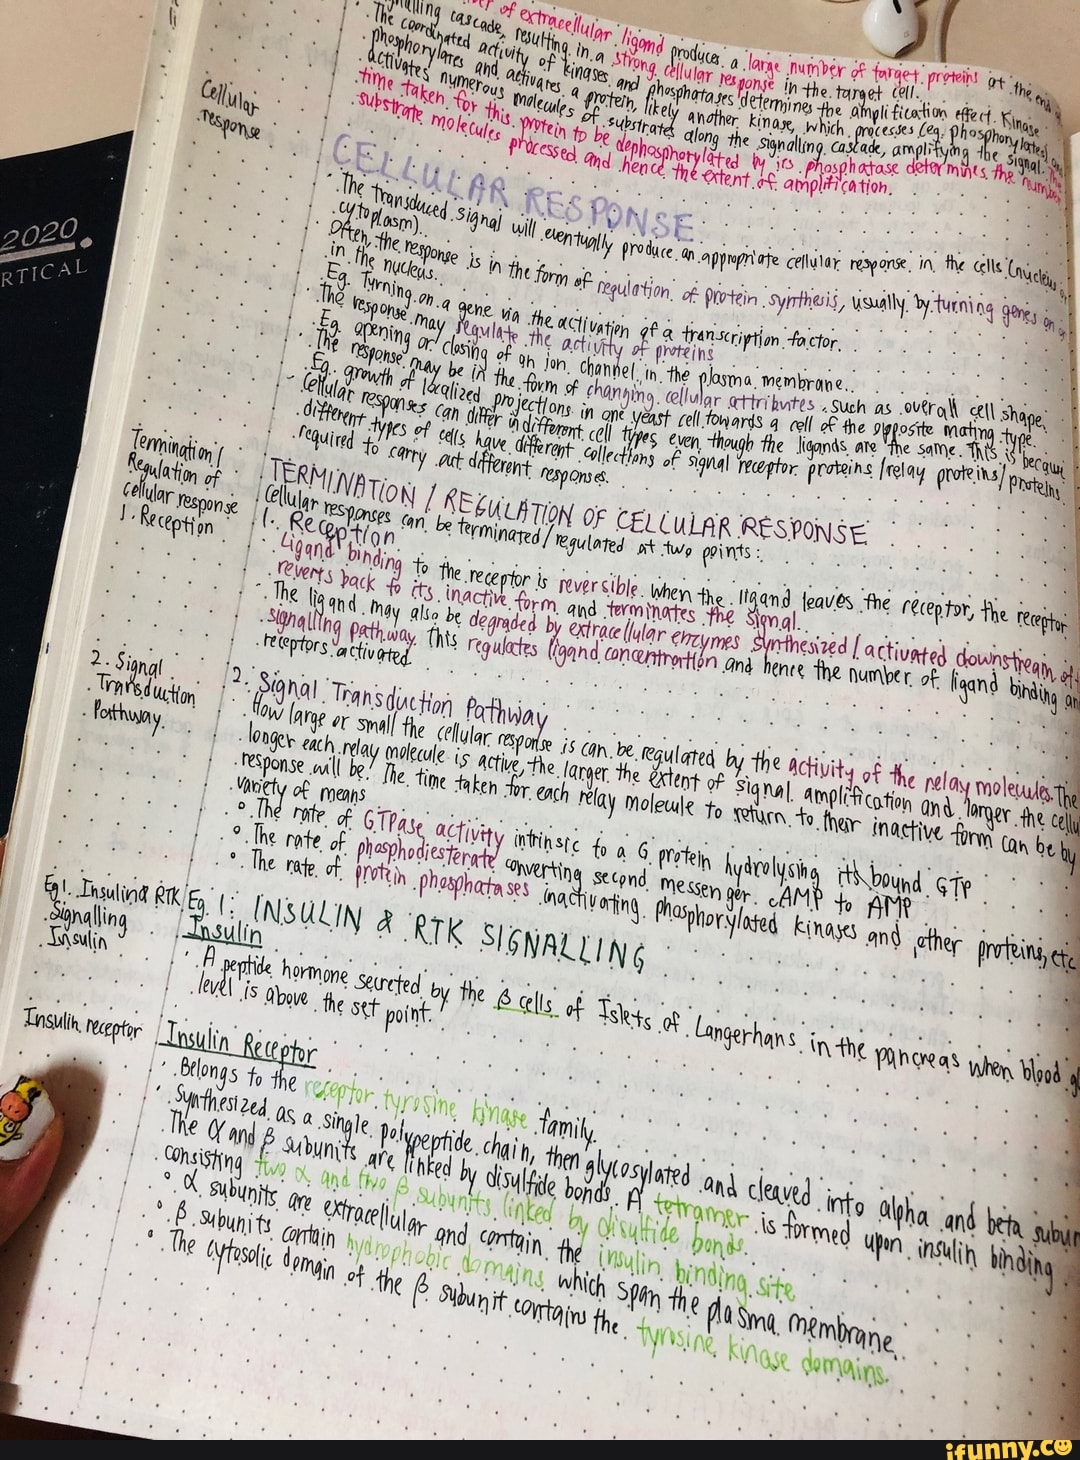 of extracellular ligand produces a large number of target proteins at the end
signalling cascade, resulting in a strong cellular response in the target cell.
The coordinated activity of kinases and phosphatases determines the amplification effect. Kinase
phosphorylates and activates a protein, likely another kinase, which processes (eg. phosphorylates) and
activates numerous molecules of substrates along the signalling cascade, amplifying the signal. The
time taken for this protein to be dephosphorylated by its phosphatase determines the number
substrate molecules processed and hence the extent of amplification.
Cellular
response
CELLULAR RESPONSE
The transduced signal will eventually produce an appropriate cellular response in the cells (nucleus or
cytoplasm).
Often, the response is in the form of regulation of protein synthesis, usually by turning genes on or
in the nucleus.
Eg. Turning on a gene via the activation of a transcription factor.
The response may regulate the activity of proteins
Eg. opening or closing of an ion channel in the plasma membrane.
The response may be in the form of changing cellular attributes such as overall cell shape.
Eg. growth of localized projections in one yeast cell towards a cell of the opposite mating type.
- Cellular responses can differ in different cell types even though the ligands are the same. This is because
different types of cells have different collections of signal receptor proteins / relay proteins / proteins
required to carry out different responses.
Termination /
Regulation of
cellular response
1. Reception
TERMINATION / REGULATION OF CELLULAR RESPONSE
Cellular responses can be terminated / regulated at two points:
1. Reception
Ligand binding to the receptor is reversible. When the ligand leaves the receptor, the receptor
reverts back to its inactive form and terminates the signal.
The ligand may also be degraded by extracellular enzymes synthesized / activated downstream of
signalling pathway. This regulates ligand concentration and hence the number of ligand binding an
receptors activated.
2. Signal
Transduction
Pathway.
2. Signal Transduction Pathway
How large or small the cellular response is can be regulated by the activity of the relay molecules. The
longer each relay molecule is active, the larger the extent of signal amplification and larger the cellu
response will be. The time taken for each relay molecule to return to their inactive form can be by
variety of means
The rate of GTPase activity intrinsic to a G protein hydrolysing its bound GTP
The rate of phosphodiesterate converting second messenger cAMP to AMP
The rate of protein phosphatases inactivating phosphorylated kinases and other proteins, etc
Eg 1. Insulin & RTK
Signalling
Insulin
Eg. 1: INSULIN & RTK SIGNALLING
Insulin
A peptide hormone secreted by the β cells of Islets of Langerhans in the pancreas when blood gl
level is above the set point.
Insulin receptor
Insulin Receptor
Belongs to the receptor tyrosine kinase family.
Synthesized as a single polypeptide chain, then glycosylated and cleaved into alpha and beta subun
The α and β subunits are linked by disulfide bonds. A tetramer is formed upon insulin binding
consisting two α and two β subunits linked by disulfide bonds.
α subunits are extracellular and contain the insulin binding site
β subunits contain hydrophobic domains which span the plasma membrane.
The cytosolic domain of the β subunit contains the tyrosine kinase domains.
2020
RTICAL
ifunny.co